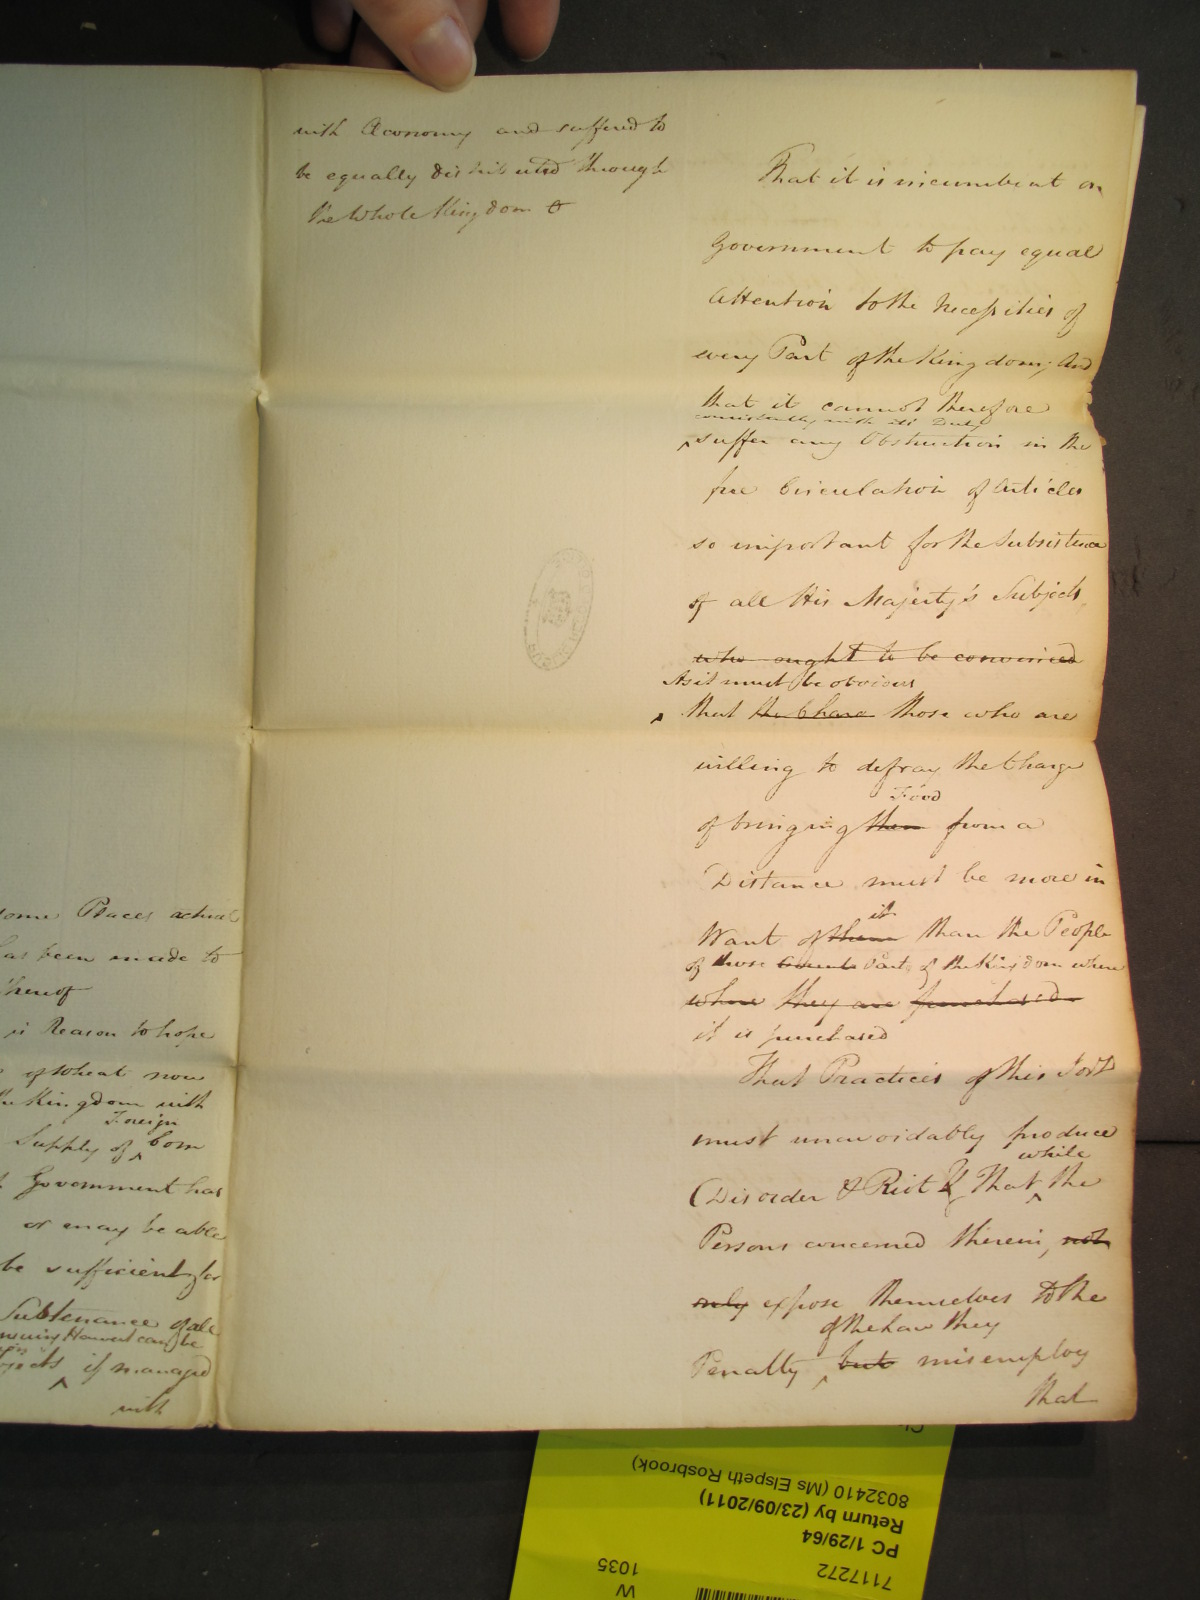 some Places actual
has been made to
thereof
is Reason to hope
of Wheat now
the Kingdom with
Foreign
Supply of ‸ Corn
Government has
or may be able
be sufficient for
Subtenance of all
ensuing Harvest can be
if managed
with
with Œconomy and suffered to
be equally distributed through
the Whole Kingdom &
That it is incumbent on
Government to pay equal
Attention to the Necessities of
every Part of the Kingdom; And
that it cannot therefore
consistently with its Duty
‸ suffer any Obstruction in the
free Circulation of Articles
so important for the Subsistence
of all His Majesty's Subjects,
who ought to be convinced
As it must be obvious
‸ that the Charge those who are
willing to defray the Charge
Food
of bringing them from a
Distance must be more in
it
Want of them than the People
of those Parts of the Kingdom where
where they are purchased
it is purchased
That Practices of this Sort
must unavoidably produce
while
Disorder & Riot & That ‸ the
Persons concerned therein, not
only expose themselves to the
of the Law they
Penalty ‸ but misemploy
that
7117272
PC 1/29/64
Return by (23/09/2011)
8032410 (Ms Elspeth Rosbrook)
W
1035